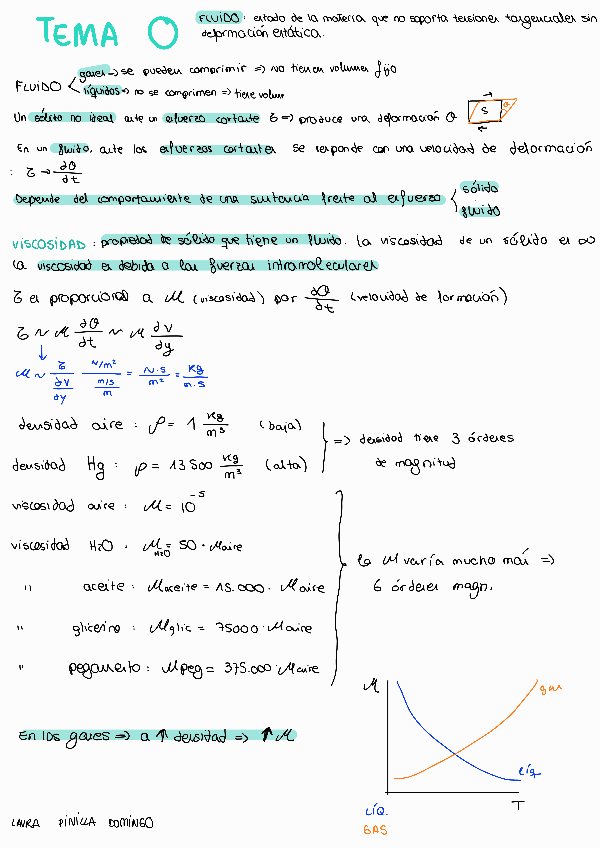 TEMA 0
FLUIDO: estado de la materia que no soporta tensiones tangenciales sin
deformación estática.
FLUIDO
gases → se pueden comprimir => No tienen volumen fijo
líquidos → no se comprimen => tiene volum
Un sólido no ideal ante un esfuerzo cortante τ => produce una deformación θ
S
θ
En un fluido, ante los esfuerzos cortantes se responde con una velocidad de deformación
: τ → dθ/dt
Depende del comportamiento de una sustancia frente al esfuerzo
sólido
fluido
VISCOSIDAD: propiedad de sólido que tiene un fluido. La viscosidad de un sólido es ∞
La viscosidad es debida a las fuerzas intramoleculares
τ es proporcional a μ (viscosidad) por dθ/dt (velocidad de formación)
τ ~ μ dθ/dt ~ μ dv/dy
μ ~ τ/(dv/dy) (N/m²)/((m/s)/m) = N·s/m² = Kg/m·s
densidad aire : ρ = 1 Kg/m³ (baja)
densidad Hg : ρ = 13500 Kg/m³ (alta)
=> densidad tiene 3 órdenes
de magnitud
viscosidad aire : μ = 10⁻⁵
viscosidad H₂O : μ H₂O = 50 · μaire
" aceite : μaceite = 15.000 · μaire
" glicerina : μglic = 75000 · μaire
" pegamento : μpeg = 375.000 · μaire
la μ varía mucho más =>
6 órdenes magn.
En los gases => a ↑ densidad => ↑ μ
μ
gas
líq
T
LÍQ.
GAS
LAURA PINILLA DOMINGO